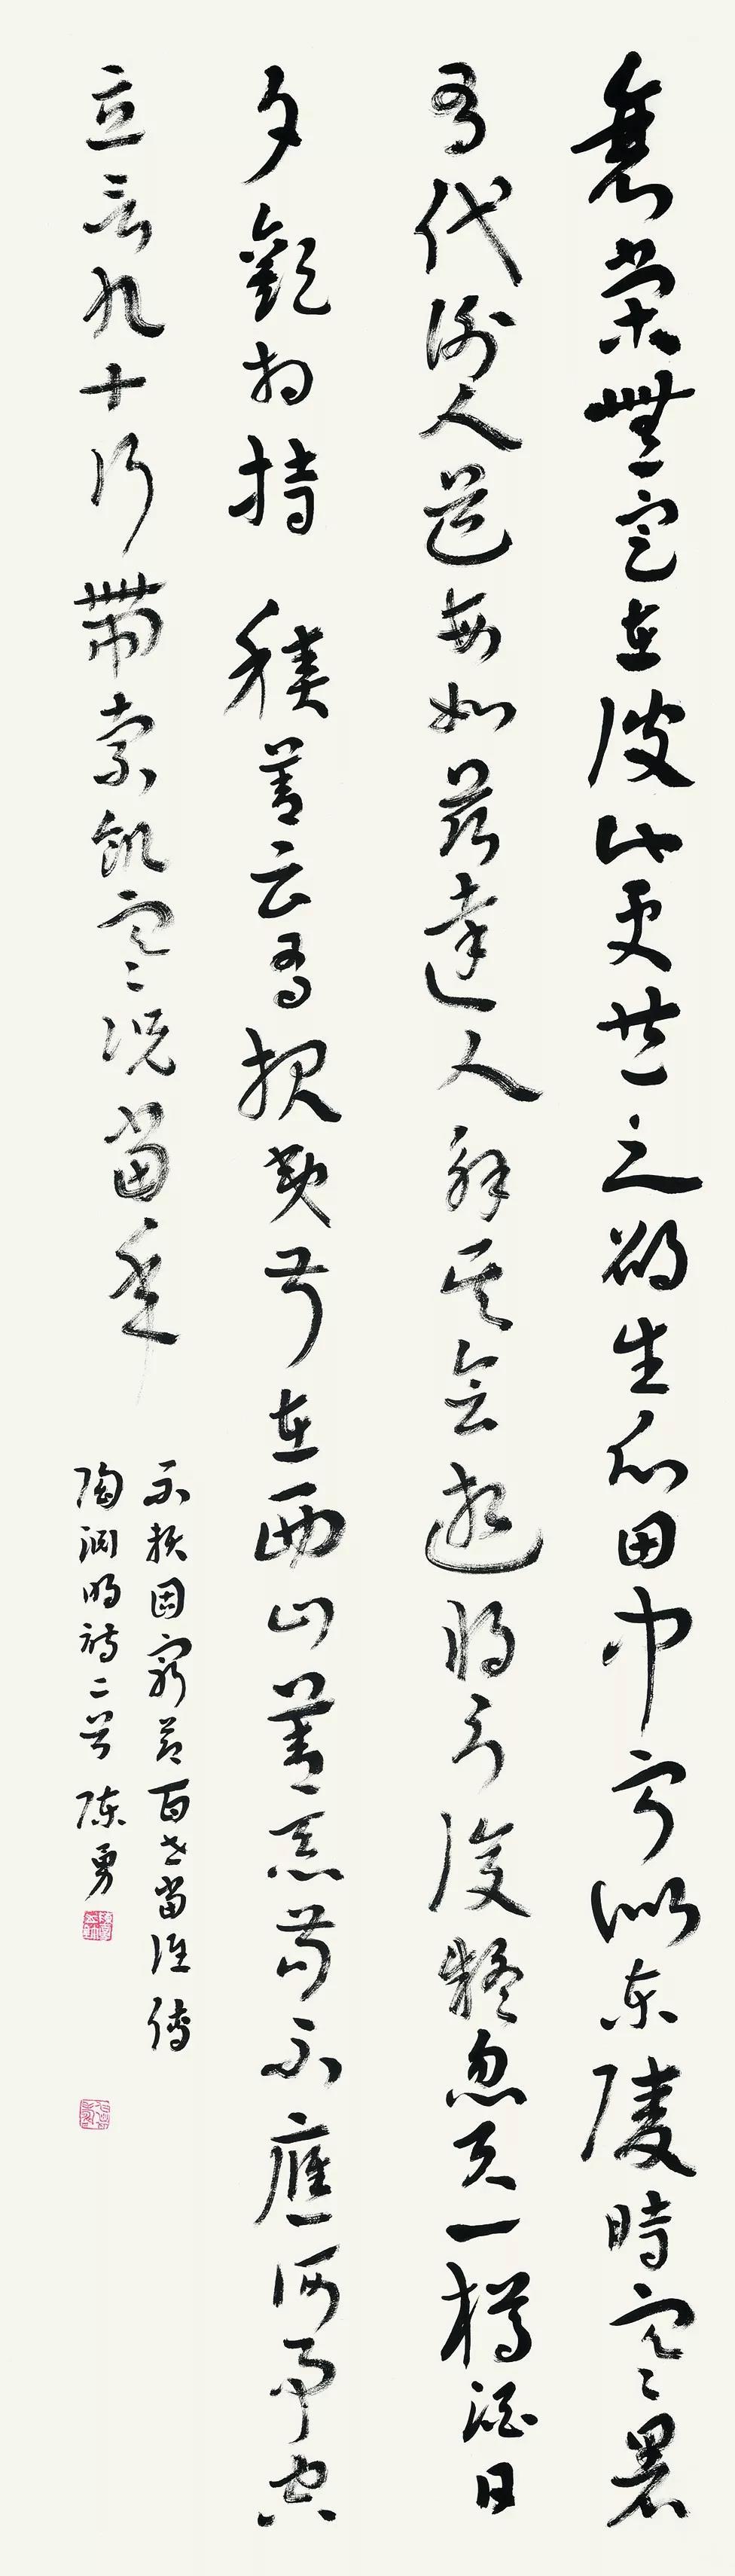 衰榮無定在彼此更共之邵生瓜田中寧似東陵時寒暑
有代謝人道每如茲達人解其會逝將不復疑忽与一樽酒日
夕歡相持 積善云有報夷叔在西山善惡苟不應何事空
立言九十行帶索飢寒況當年
不賴固窮節百世當誰傳
陶淵明詩二首 陳勇